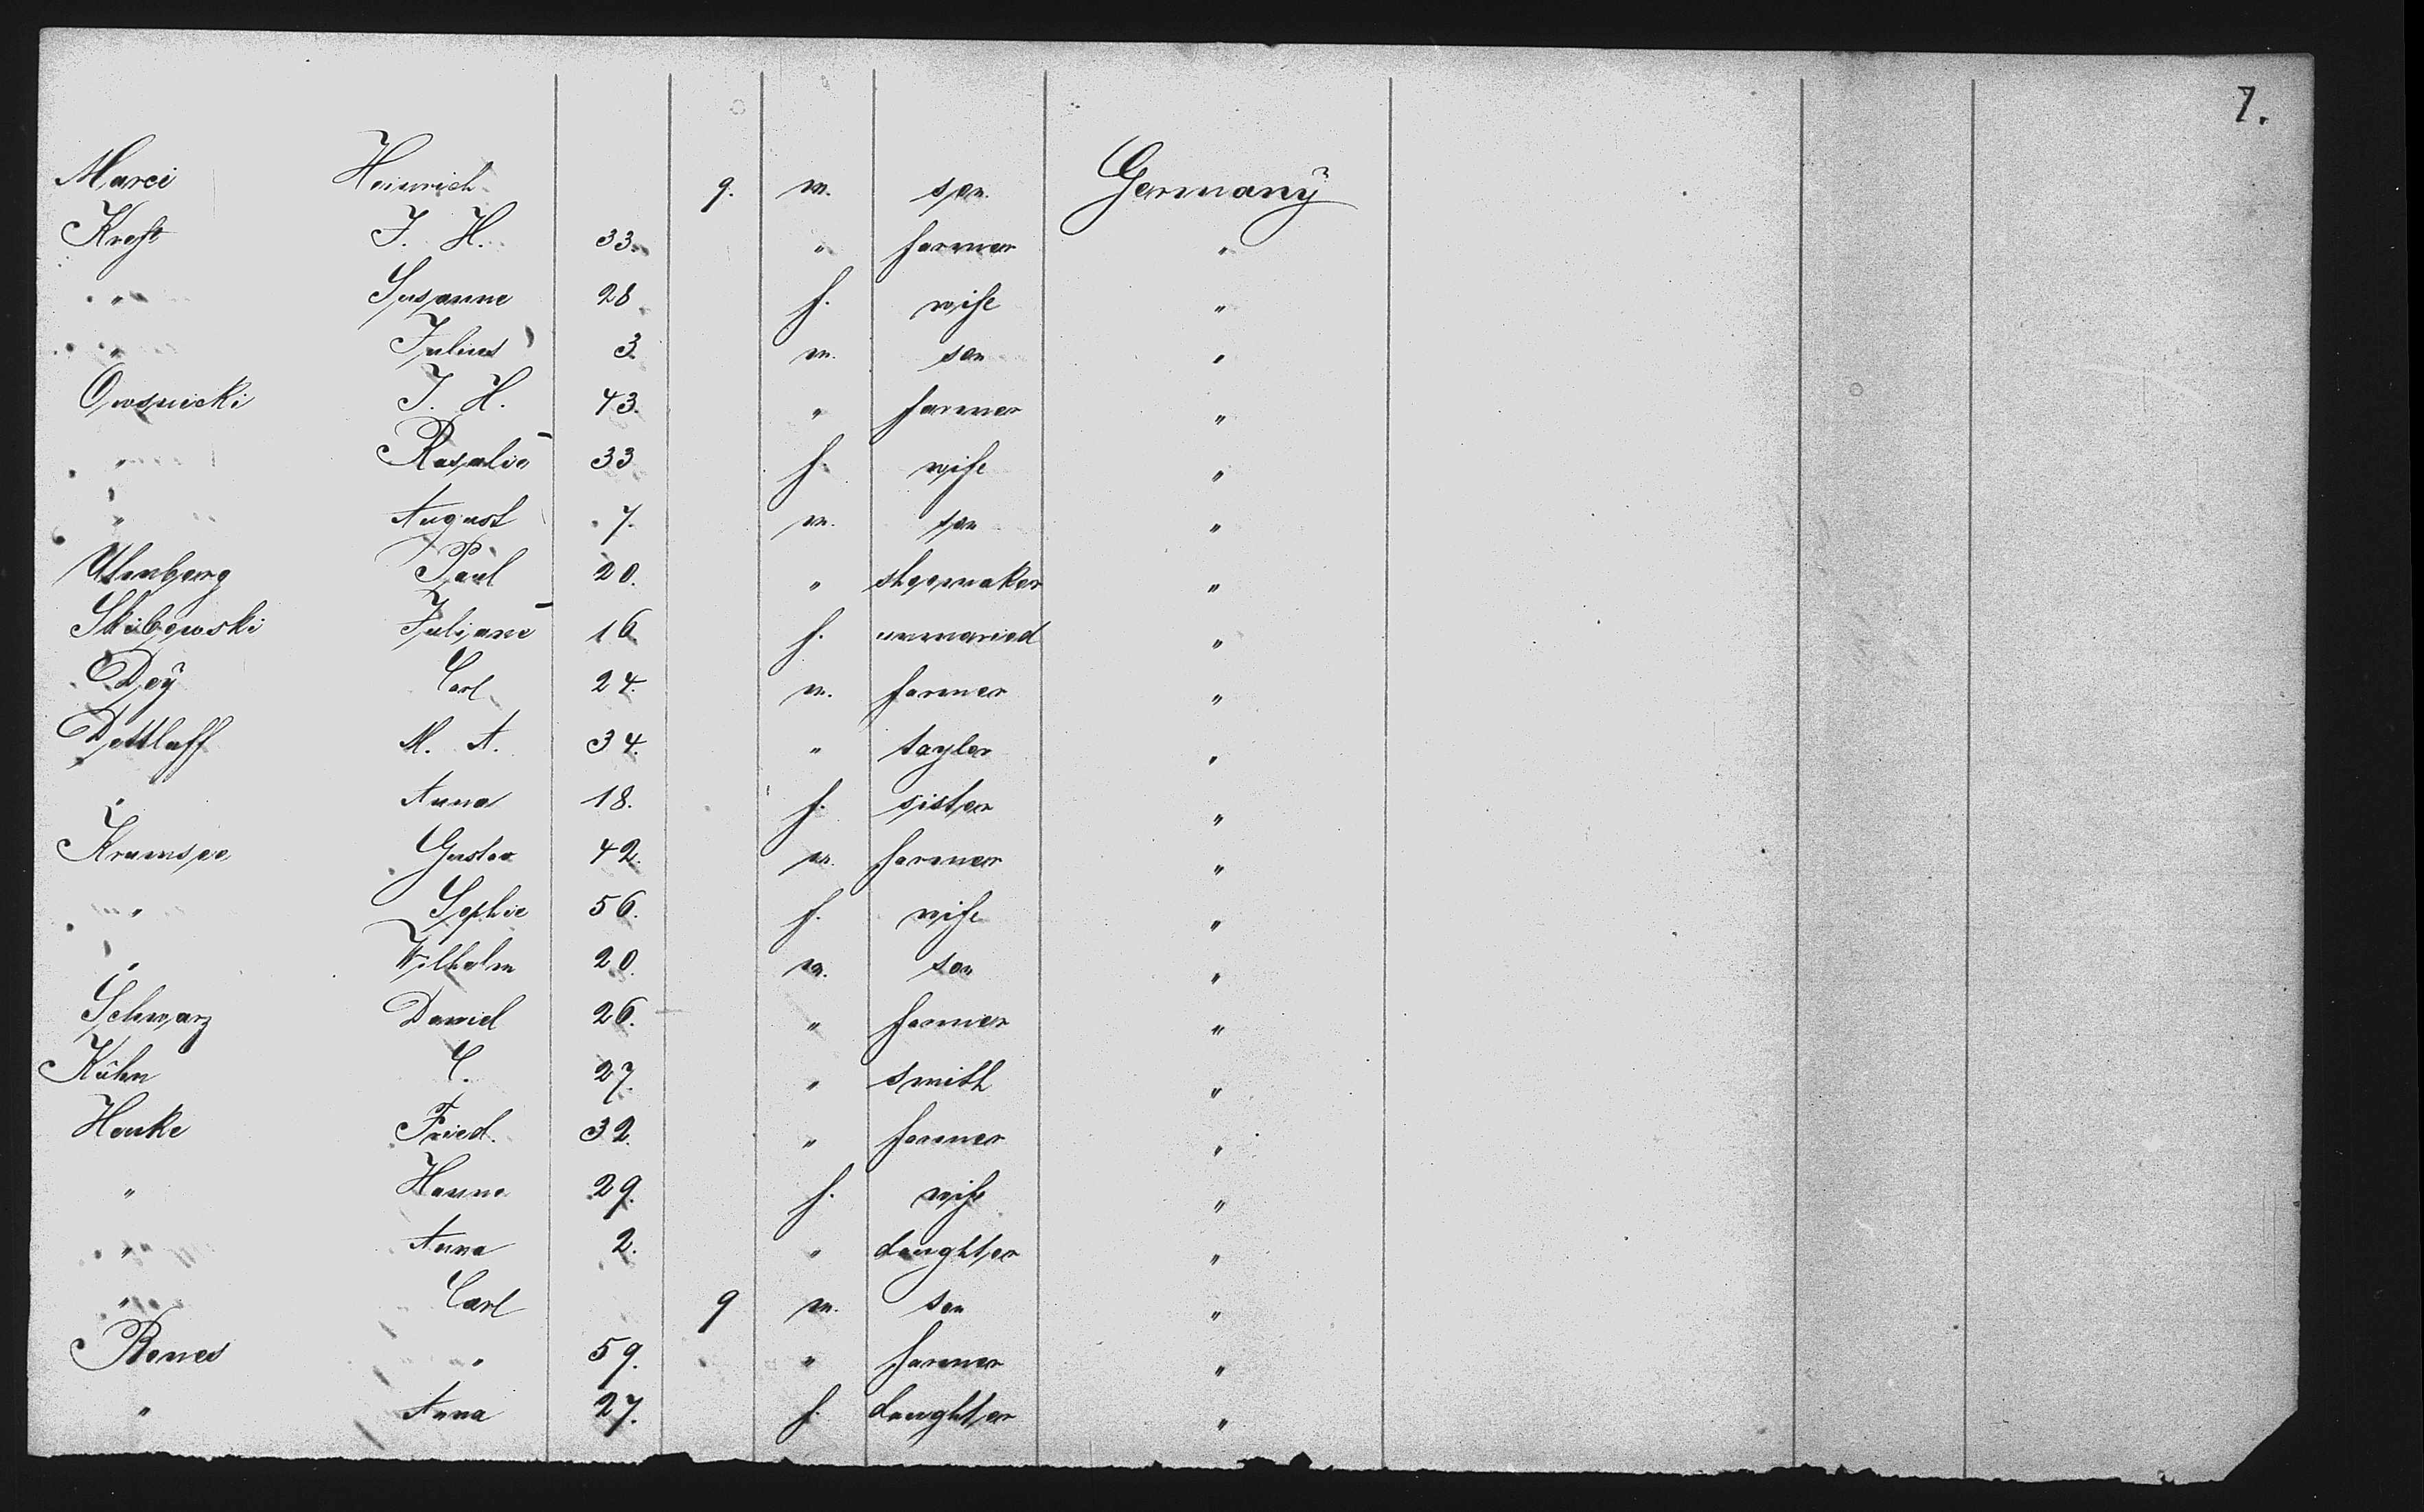 7.
Marci Heinrich 9. m. son Germany
Kreft J. H. 33. " farmer "
" Susanne 28 f. wife "
" Julius 3 m. son "
Owsnicki J. H. 43. " farmer "
" Rosalie 33 f. wife "
" August 7. m. son "
Paul 20. " shoemaker "
Juliane 16 f. unmaried "
Dey Carl 24. m. farmer "
Dettlaff M. A. 34. " taylor "
" Anna 18. f. sister "
Krumsee Gustav 42. m. farmer "
" Sophie 56. f. wife "
" Wilhelm 20. m. son "
Schwarz Daniel 26. " farmer "
Kühn C. 27. " smith "
Henke Fried. 32. " farmer "
" Hanna 29. f. wife "
" Anna 2. " daughter "
" Carl 9 m. son "
" 59. " farmer "
" Anna 27. f. daughter "